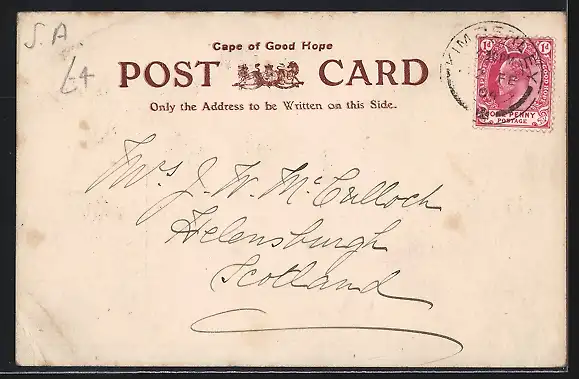 S.A
£4
Cape of Good Hope
POST CARD
Only the Address to be Written on this Side.
1d 1d
ONE PENNY
POSTAGE
Mrs J. W. McCulloch
Helensburgh
Scotland